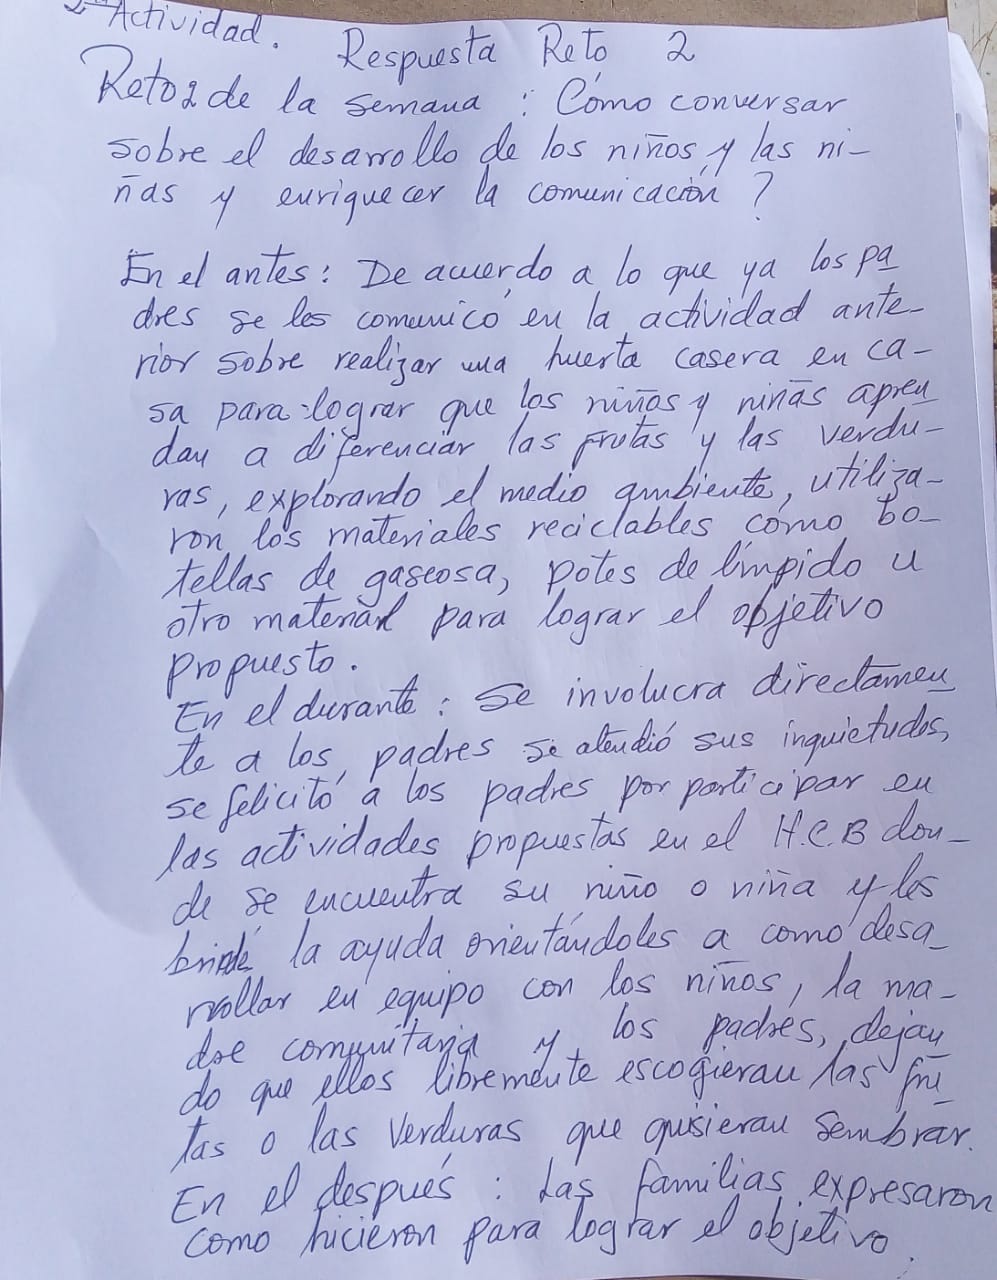 2 Actividad. Respuesta Reto 2
Reto 2 de la semana : Cómo conversar
sobre el desarrollo de los niños y las ni-
ñas y enriquecer la comunicación ?
En el antes : De acuerdo a lo que ya los pa
dres se les comunicó en la actividad ante-
rior sobre realizar una huerta casera en ca-
sa para lograr que los niños y niñas apren
dan a diferenciar las frutas y las verdu-
ras, explorando el medio ambiente, utiliza-
ron los materiales reciclables como bo-
tellas de gaseosa, potes de límpido u
otro material para lograr el objetivo
propuesto.
En el durante : Se involucra directamen
te a los padres se atendió sus inquietudes,
se felicitó a los padres por participar en
las actividades propuestas en el H.C.B don-
de se encuentra su niño o niña y les
brindé la ayuda orientándoles a como desa
rrollar en equipo con los niños, la ma-
dre comunitaria y los padres, dejan
do que ellos libremente escogieran las fru
tas o las verduras que quisieran sembrar.
En el después : Las familias expresaron
como hicieron para lograr el objetivo.